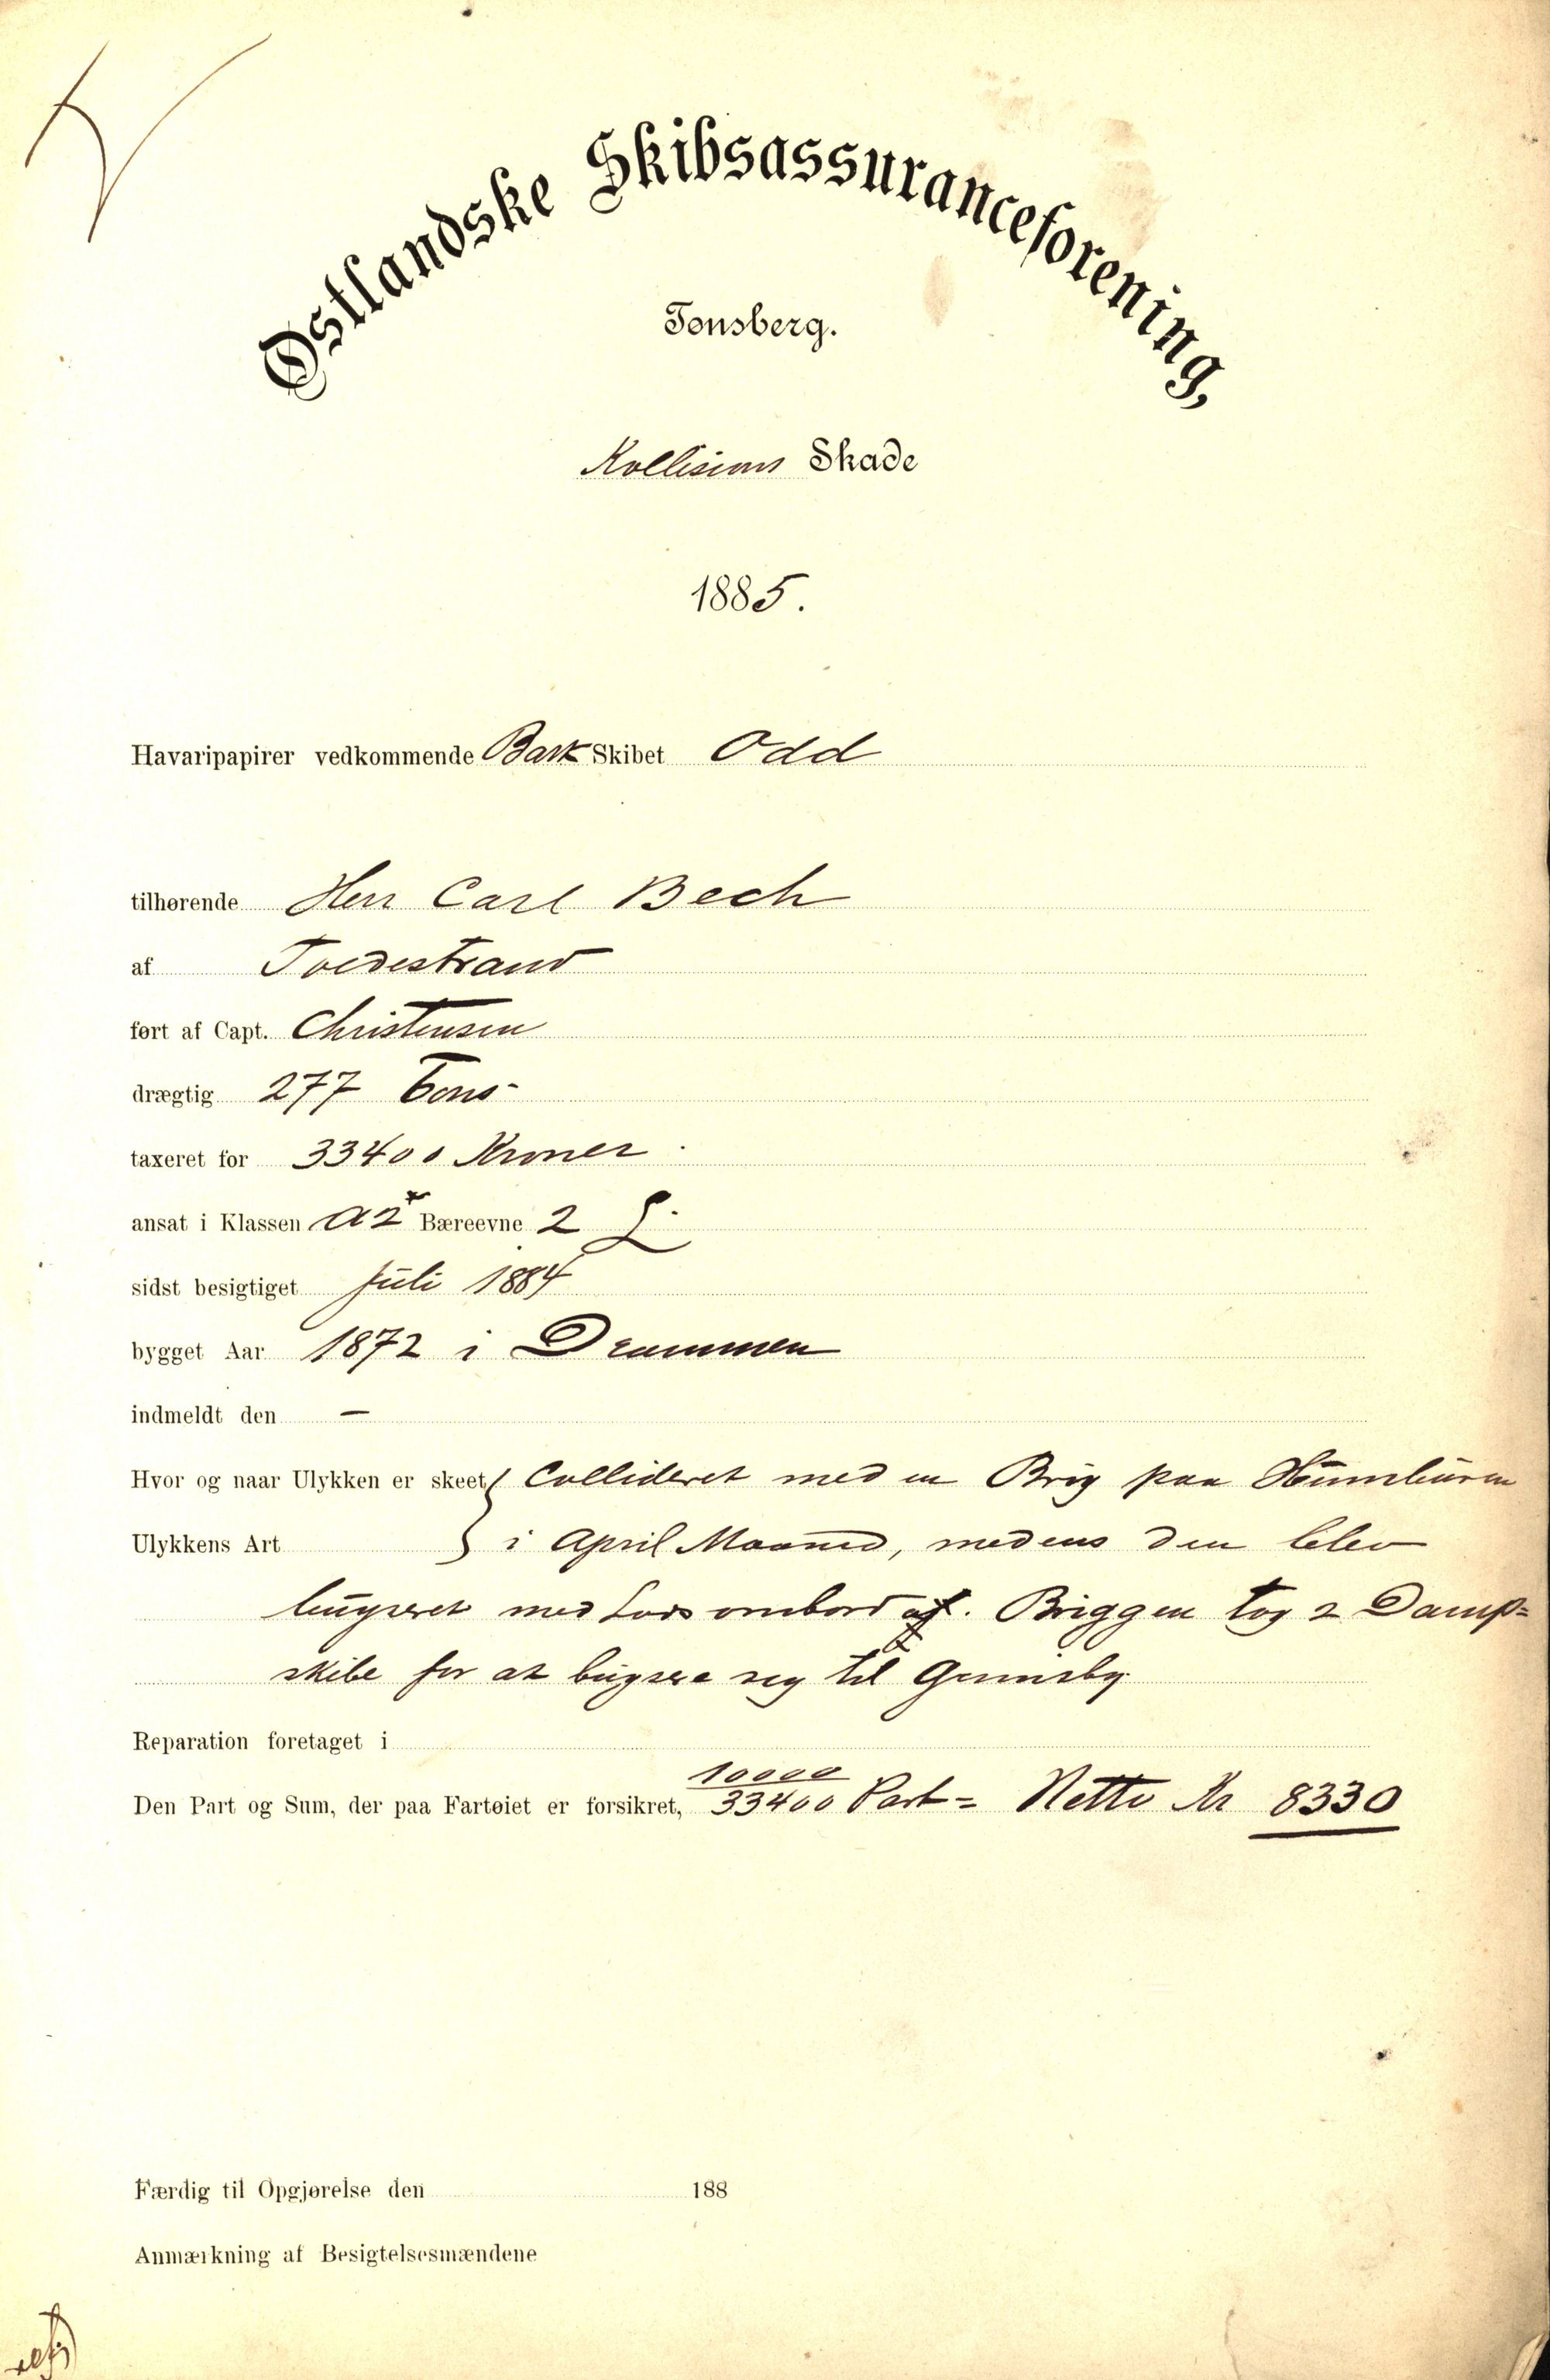 Østlandske Skibsassuranceforening,
Tønsberg.
Kollisions Skade
1885.
Havaripapirer vedkommende Bark Skibet Odd
tilhørende Herr Carl Bech
af Tvedestrand
ført af Capt. Christensen
drægtig 277 Tons
taxeret for 33400 Kroner
ansat i Klassen A2* Bæreevne 2
sidst besigtiget Juli 1884
bygget Aar 1872 i Drammen
indmeldt den —
Hvor og naar Ulykken er skeet } Collideret med en Brig paa Humburen
Ulykkens Art } i April Maaned, medens den blev
bugseret med Lods ombord af. Briggen tog 2 Damp=
skibe for at bugsere sig til Grimsby
Reparation foretaget i
Den Part og Sum, der paa Fartøiet er forsikret, 10000/33400 Part = Netto Kr 8330
Færdig til Opgjørelse den 188
Anmærkning af Besigtelsesmændene